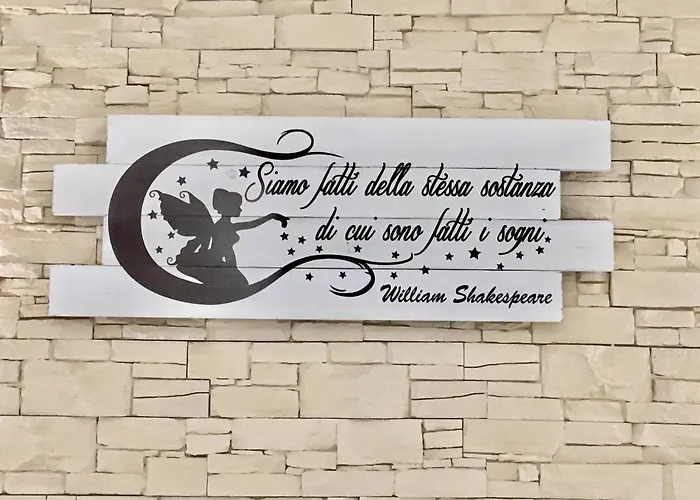 Siamo fatti della stessa sostanza
di cui sono fatti i sogni.
William Shakespeare